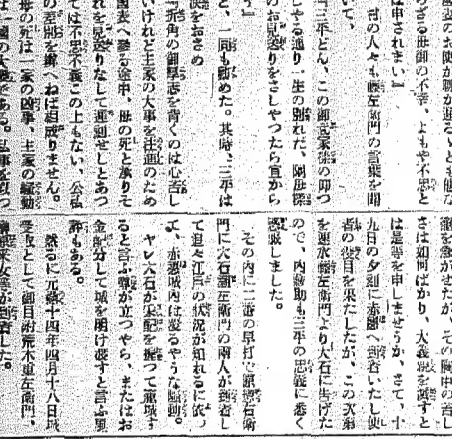 ざる母御の不幸、よもや不忠と
は申されまい。』
村の人々も藤左衞門の言葉を聞
いて、
『三平どん、この御意家樣の仰つ
しやる通り一生の別れだ、母樣
のお見送りをさしやつたら宜から
う』
と、一同も勸めた。其時、三平は
をおさめ
『折角の御厚志を背くのは心苦し
いけれど主家の大事を注進のため
國表へ參る途中、母の死と承りそ
れを見送りなして遲刻せしとあつ
ては不忠不義この上もない、公私
の差別を辨へねば相成りません。
母の死は一家の凶事、主家の騷動
は一國の大變である。私事を以つ
籠を急がせたが、その胸中の苦し
さは如何ばかり、大義親を滅すと
は是等を申しませうか、さて、十
九日の夕刻に赤穗へ到着いたし使
者の役目を果たしたが、この次第
を速水藤左衞門より大石に告げた
ので、内藏助も三平の忠義に悉く
しました。
その内に二番の早打で原惣右衞
門に大石瀨左衞門の兩人が到着し
て追々江戸の狀況が知れるに依つ
て、赤穗城内は沸るやうな騷動。
ヤレ大石が采配を握つて籠城す
ると言ふ噂が立つやら、またはお
金を分して城を明け渡すと言ふ風
評もある。
然るに元祿十四年四月十八日城
受取として御目附荒木重左衞門、
榊原采女等が到着した。